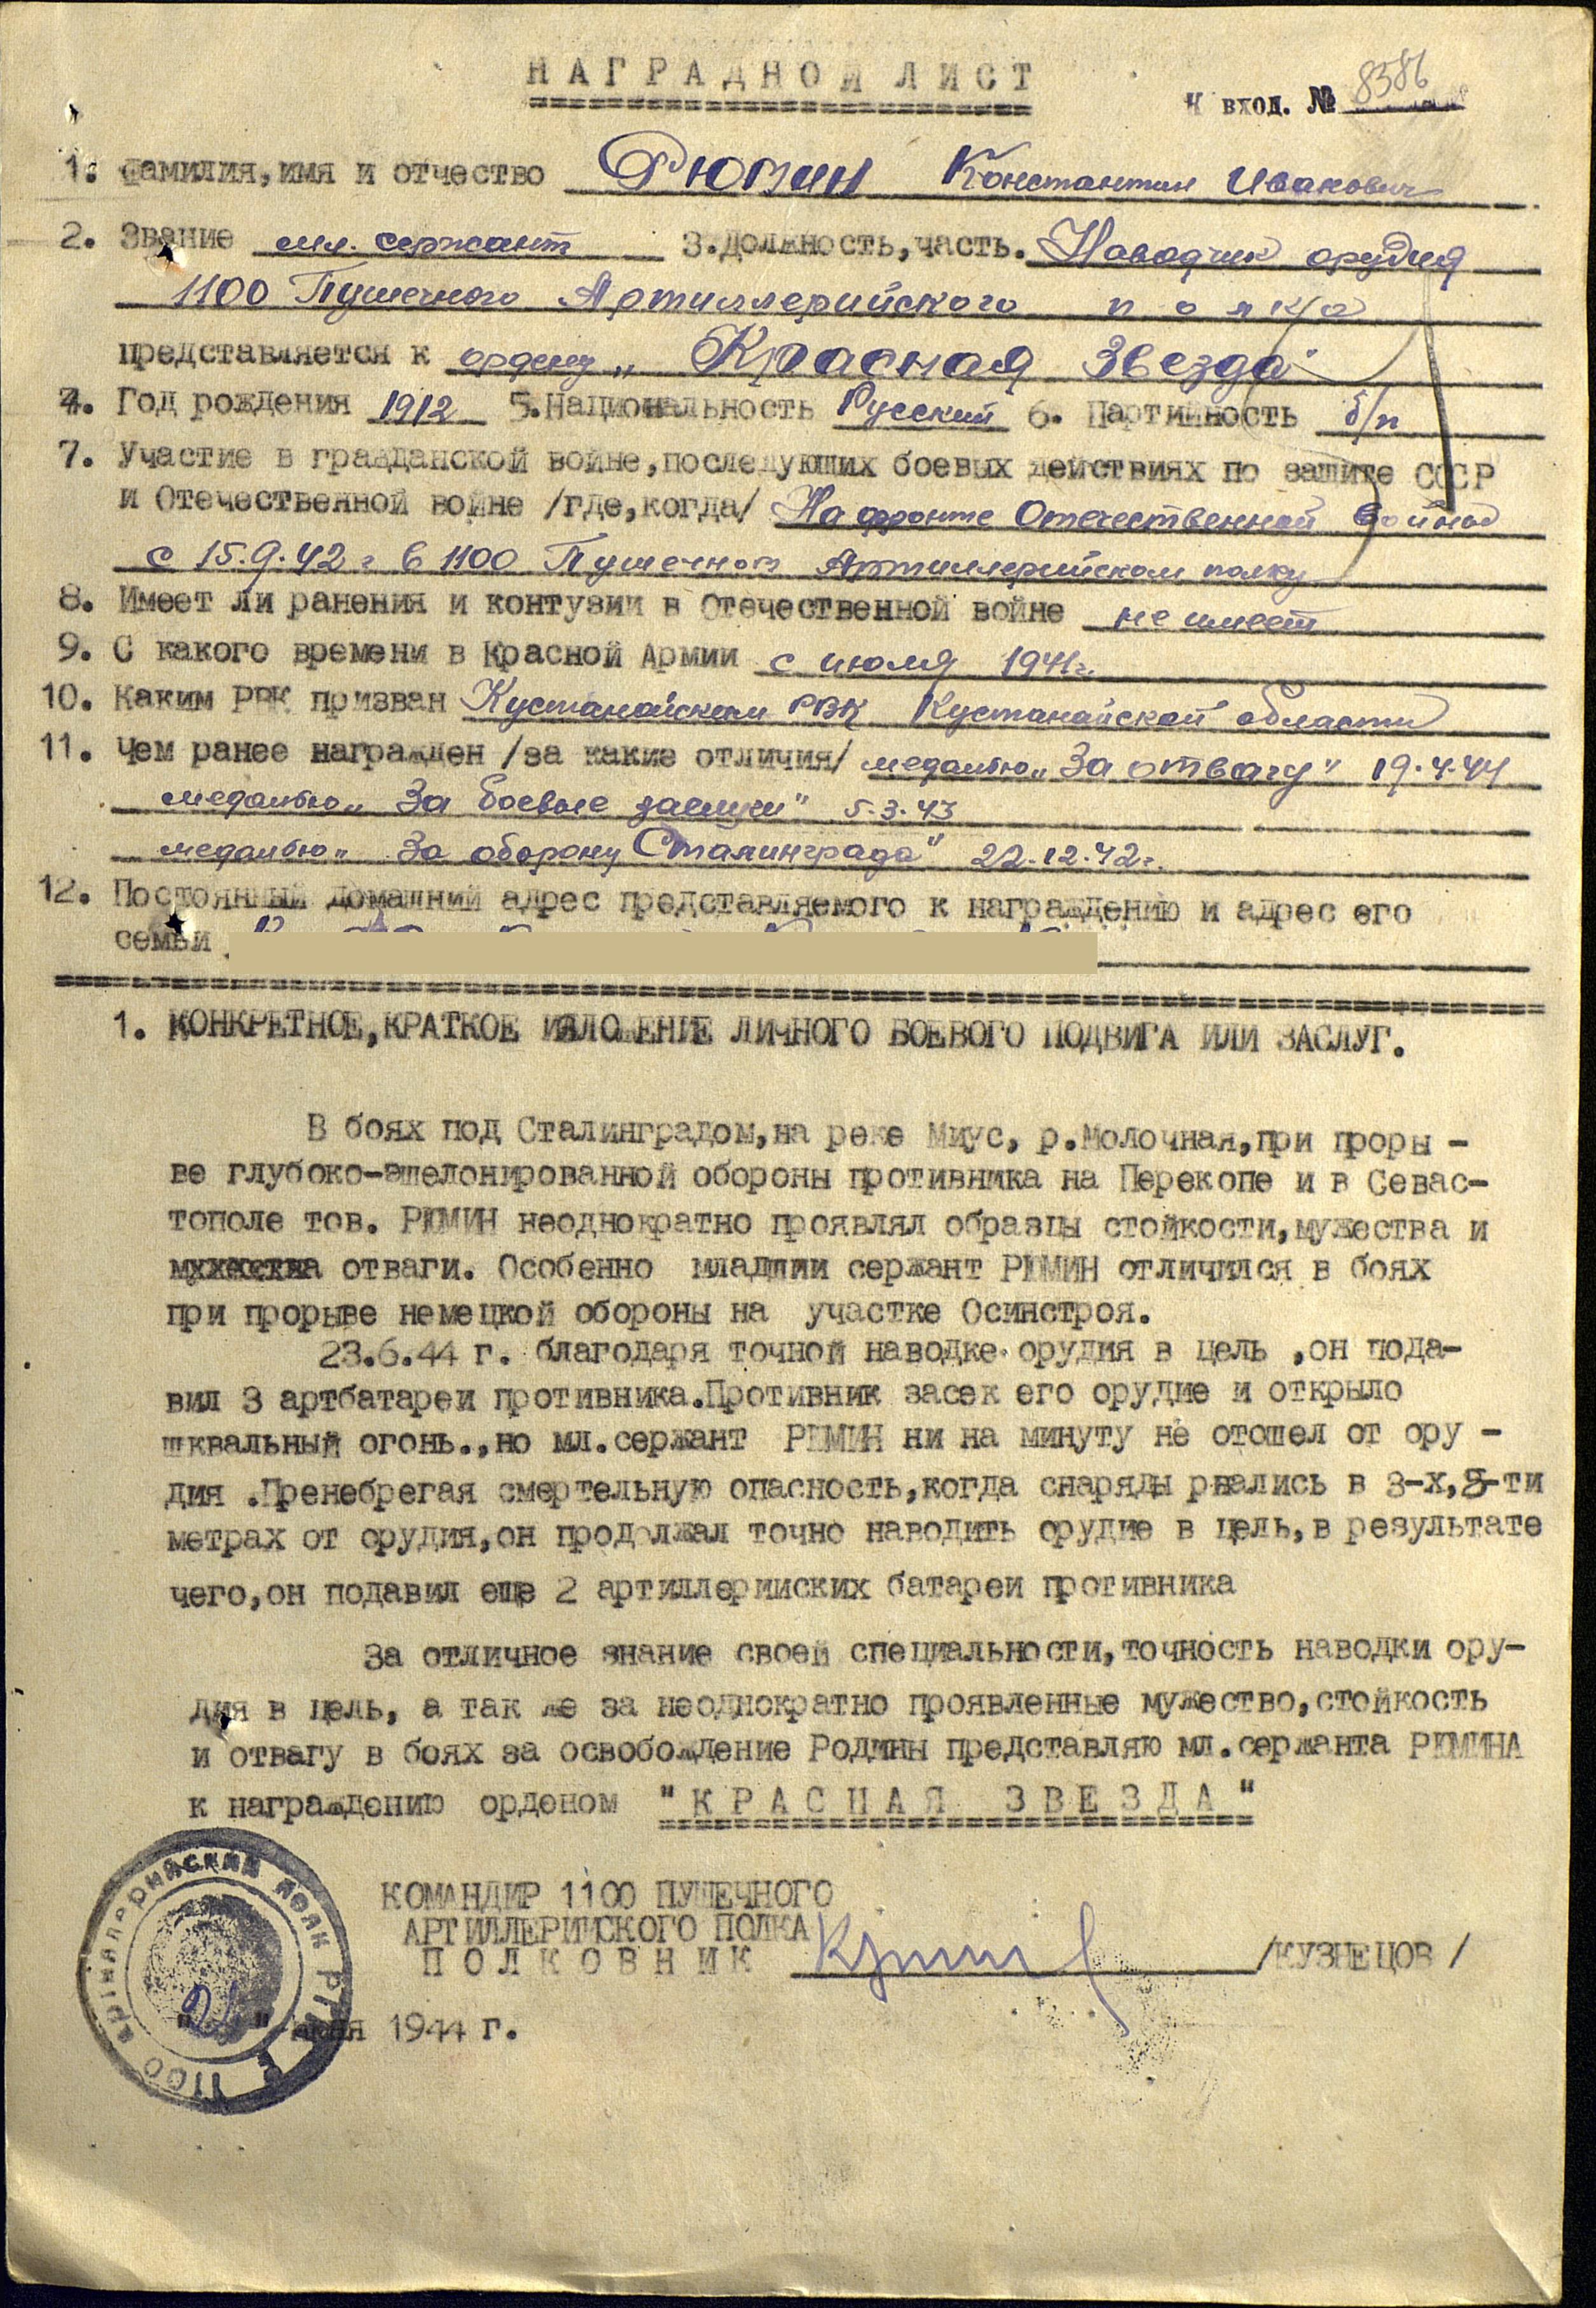 НАГРАДНОЙ ЛИСТ
К вход. № 8386
1. Фамилия,имя и отчество Рюмин Константин Иванович
2. Звание мл. сержант 3.Должность,часть. Наводчик орудия
1100 Пушечного Артиллерийского полка
представляется к ордену „Красная Звезда"
4. Год рождения 1912 5.Национальность Русский 6. Партийность б/п
7. Участие в гражданской войне,последующих боевых действиях по защите СССР
и Отечественной войне /где,когда/ На фронте Отечественной войны
с 15.9.42 г в 1100 Пушечном Артиллерийском полку
8. Имеет ли ранения и контузии в Отечественной войне не имеет
9. С какого времени в Красной Армии с июля 1941г.
10. Каким РВК призван Кустанайским РВК Кустанайской области
11. Чем ранее награжден /за какие отличия/ медалью „За отвагу" 19.4.44
медалью „За боевые заслуги" 5.3.43
медалью „За оборону Сталинграда" 22.12.42г.
12. Постоянный домашний адрес представляемого к награждению и адрес его
семьи
1. КОНКРЕТНОЕ,КРАТКОЕ ИЗЛОЖЕНИЕ ЛИЧНОГО БОЕВОГО ПОДВИГА ИЛИ ЗАСЛУГ.
В боях под Сталинградом,на реке Миус, р.Молочная,при проры -
ве глубоко-эшелонированной обороны противника на Перекопе и в Севас-
тополе тов. РЮМИН неоднократно проявлял образцы стойкости,мужества и
отваги. Особенно младший сержант РЮМИН отличился в боях
при прорыве немецкой обороны на участке Осинстроя.
23.6.44 г. благодаря точной наводке орудия в цель ,он пода-
вил 3 артбатареи противника.Противник засек его орудие и открыло
шквальный огонь.,но мл.сержант РЮМИН ни на минуту не отошел от ору -
дия .Пренебрегая смертельную опасность,когда снаряды рвались в 3-х,5-ти
метрах от орудия,он продолжал точно наводить орудие в цель,в результате
чего,он подавил еще 2 артиллерийских батареи противника
За отличное знание своей специальности,точность наводки ору-
дия в цель, а так же за неоднократно проявленные мужество,стойкость
и отвагу в боях за освобождение Родины представляю мл.сержанта РЮМИНА
к награждению орденом "КРАСНАЯ ЗВЕЗДА"
КОМАНДИР 1100 ПУШЕЧНОГО
АРТИЛЛЕРИЙСКОГО ПОЛКА
ПОЛКОВНИК /КУЗНЕЦОВ /
1944 г.
1100 артиллерийский полк РГК